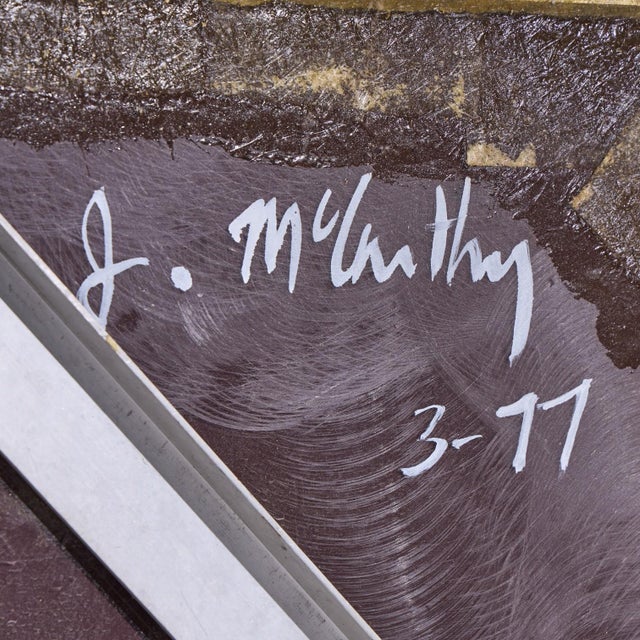 J. McCarthy
3-77